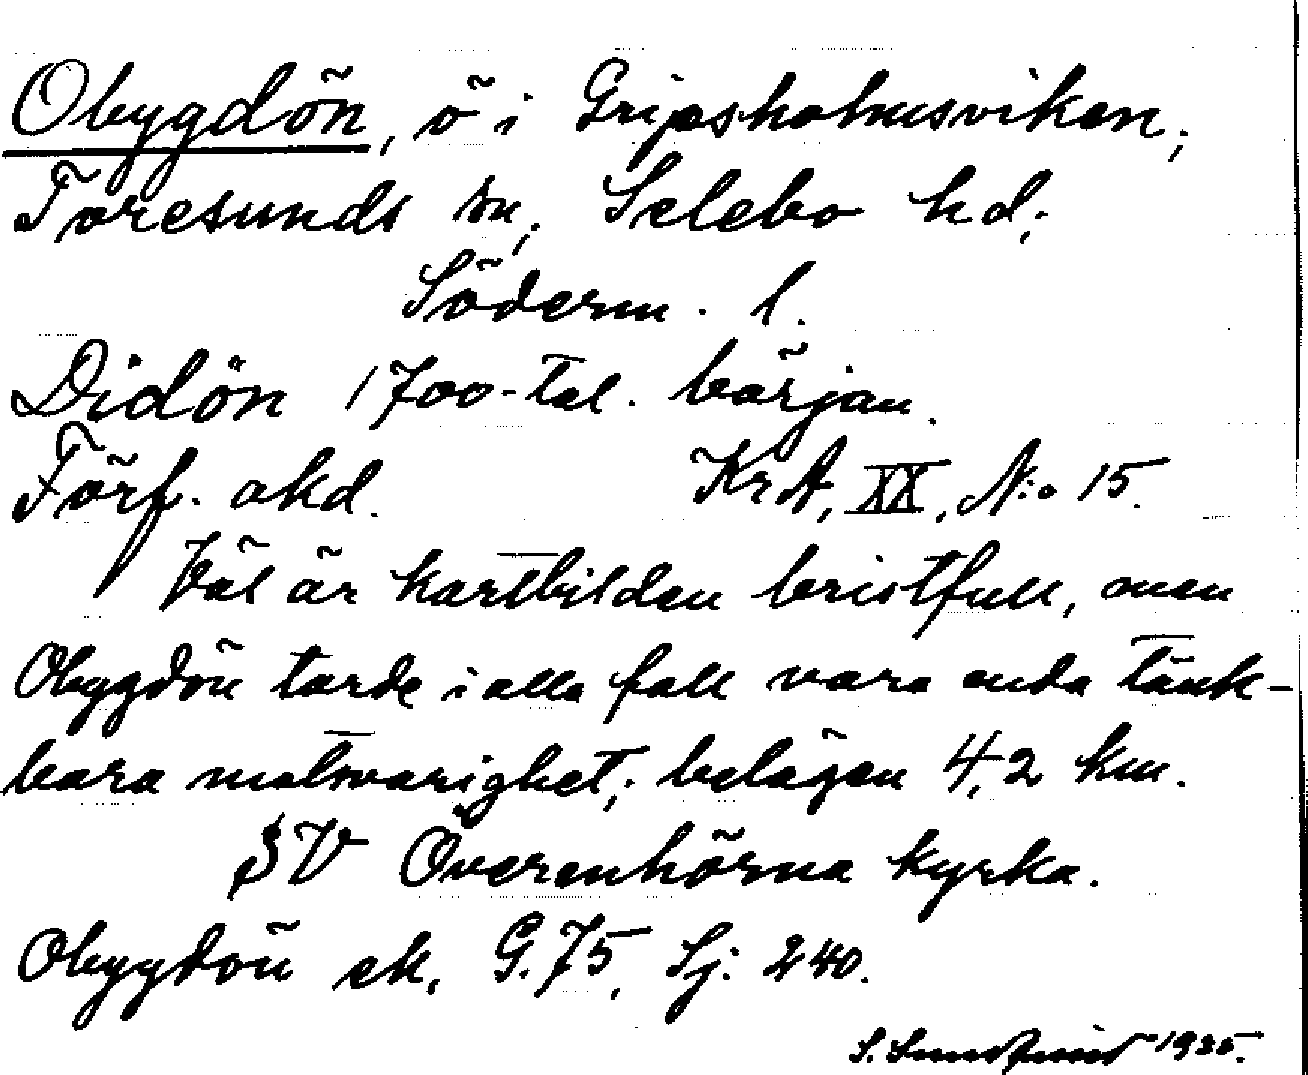 Obygdön, ö i Gripsholmsviken;
Toresunds sn; Selebo hd;
Söderm. l.
Didön 1700-tal. början.
Förf. okd. KrA, XX, N:o 15.
Väl är kartbilden bristfull, men
Obygdön torde i alla fall vara enda tänk-
bara motsvarighet; belägen 4,2 km.
SV Överenhörna kyrka.
Obygdön ek. G. 75, Sj: 240.
S. 1935.